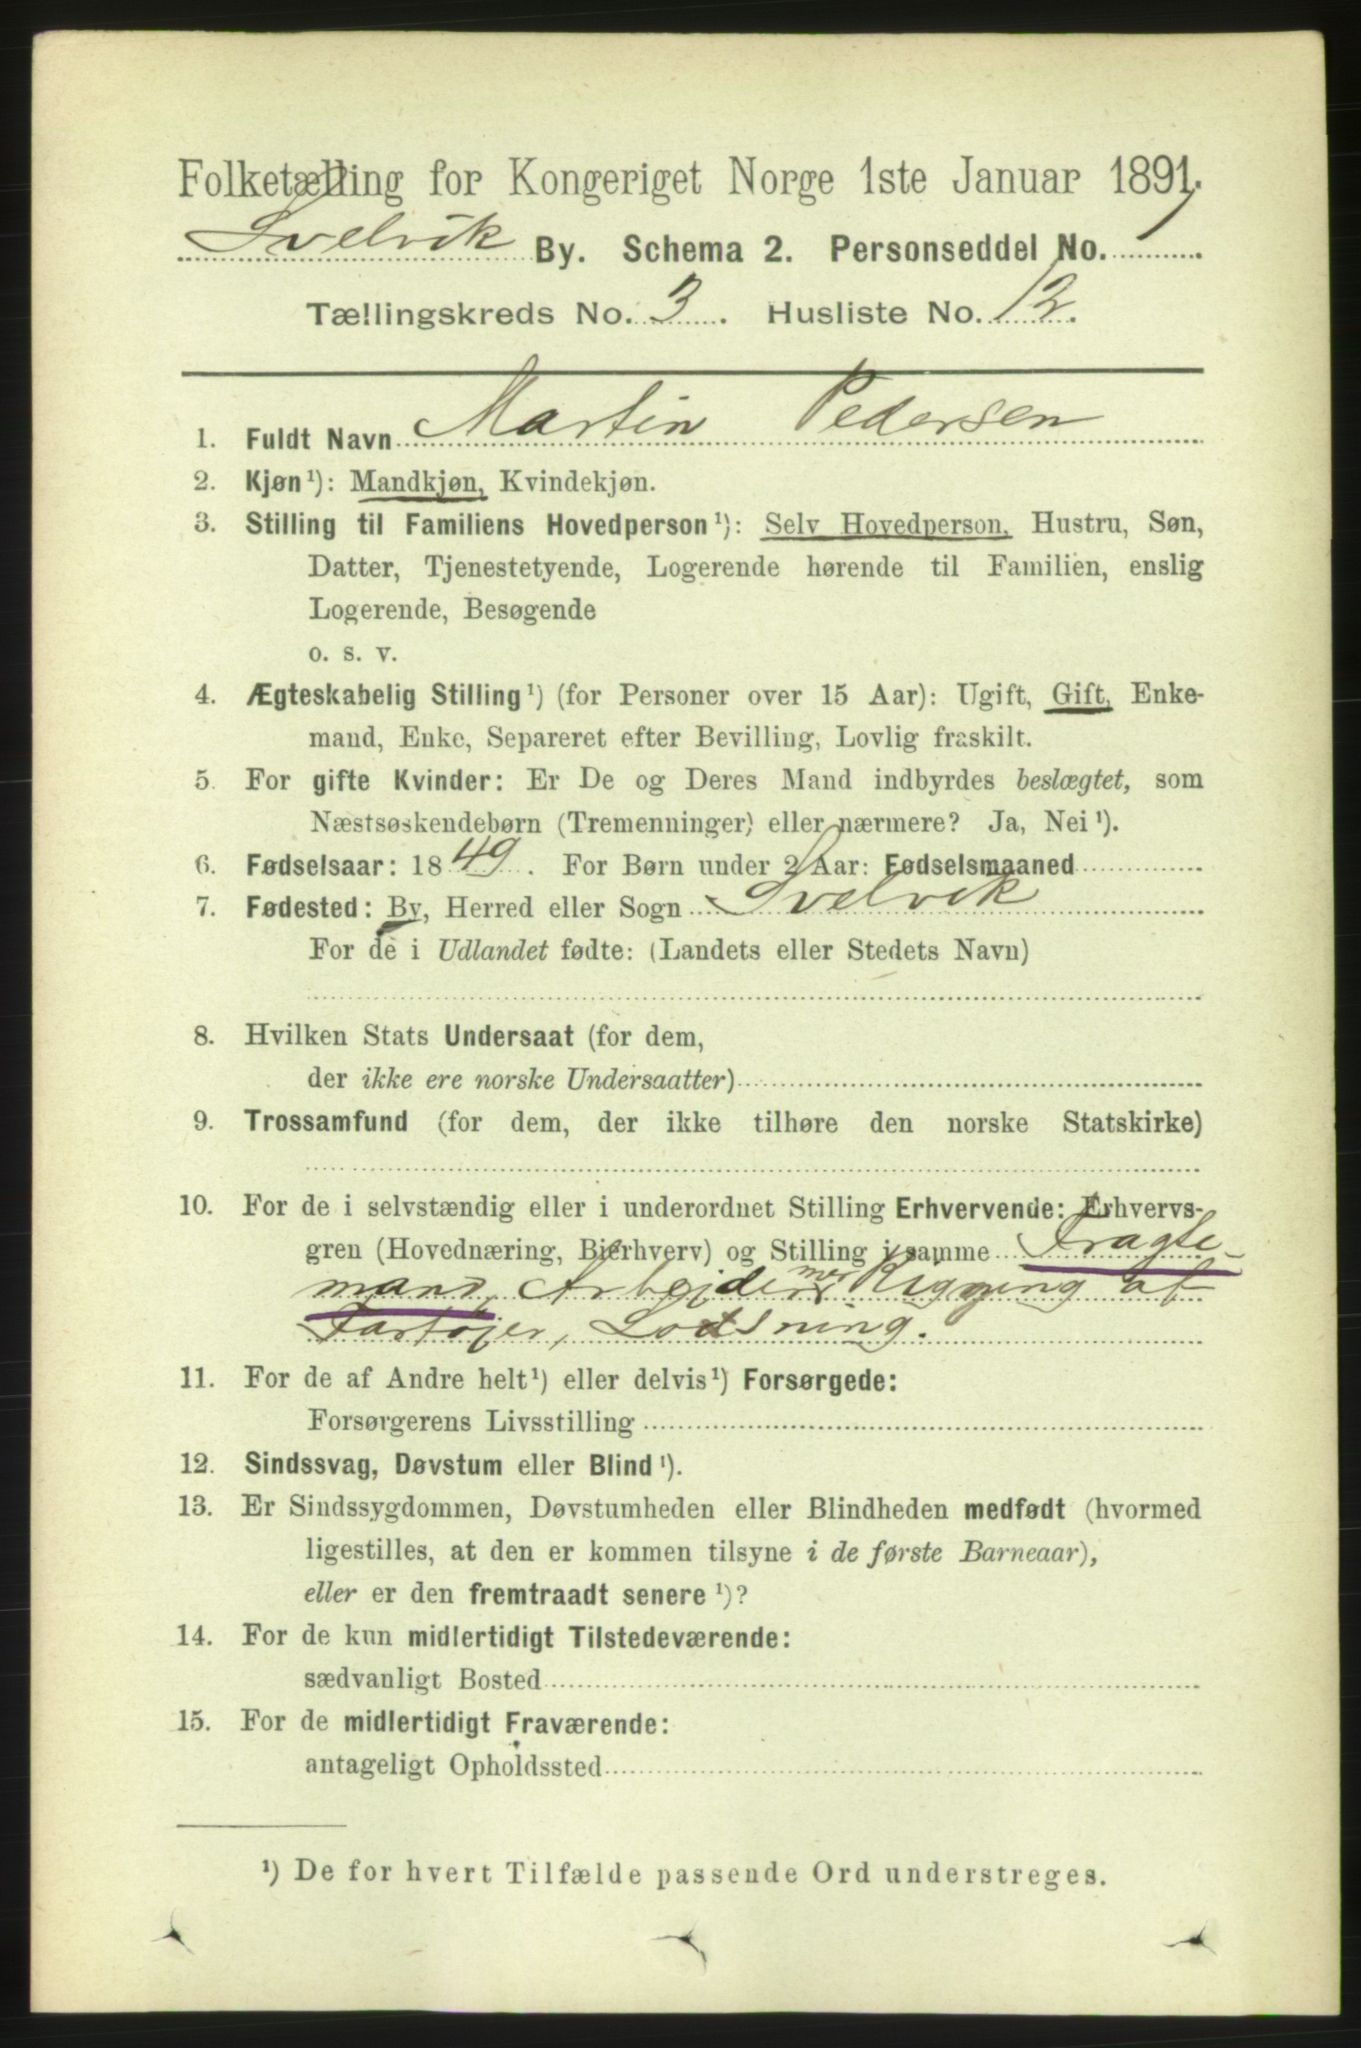 Folketælling for Kongeriget Norge 1ste Januar 1891.
Svelvik By. Schema 2. Personseddel No. 1
Tællingskreds No. 3. Husliste No. 12.
1. Fuldt Navn Martin Pedersen
2. Kjøn¹): Mandkjøn, Kvindekjøn.
3. Stilling til Familiens Hovedperson¹): Selv Hovedperson, Hustru, Søn,
Datter, Tjenestetyende, Logerende hørende til Familien, enslig
Logerende, Besøgende
o. s. v.
4. Ægteskabelig Stilling¹) (for Personer over 15 Aar): Ugift, Gift, Enke-
mand, Enke, Separeret efter Bevilling, Lovlig fraskilt.
5. For gifte Kvinder: Er De og Deres Mand indbyrdes beslægtet, som
Næstsøskendebørn (Tremenninger) eller nærmere? Ja, Nei¹).
6. Fødselsaar: 1849. For Børn under 2 Aar: Fødselsmaaned
7. Fødested: By, Herred eller Sogn Svelvik
For de i Udlandet fødte: (Landets eller Stedets Navn)
8. Hvilken Stats Undersaat (for dem,
der ikke ere norske Undersaatter)
9. Trossamfund (for dem, der ikke tilhøre den norske Statskirke)
10. For de i selvstændig eller i underordnet Stilling Erhvervende: Erhvervs-
gren (Hovednæring, Bierhverv) og Stilling i samme Fragte-
mand, Arbejder Rigging af
Fartøjer, Lodsning.
11. For de af Andre helt¹) eller delvis¹) Forsørgede:
Forsørgerens Livsstilling
12. Sindssvag, Døvstum eller Blind¹).
13. Er Sindssygdommen, Døvstumheden eller Blindheden medfødt (hvormed
ligestilles, at den er kommen tilsyne i de første Barneaar),
eller er den fremtraadt senere¹)?
14. For de kun midlertidigt Tilstedeværende:
sædvanligt Bosted
15. For de midlertidigt Fraværende:
antageligt Opholdssted
¹) De for hvert Tilfælde passende Ord understreges.